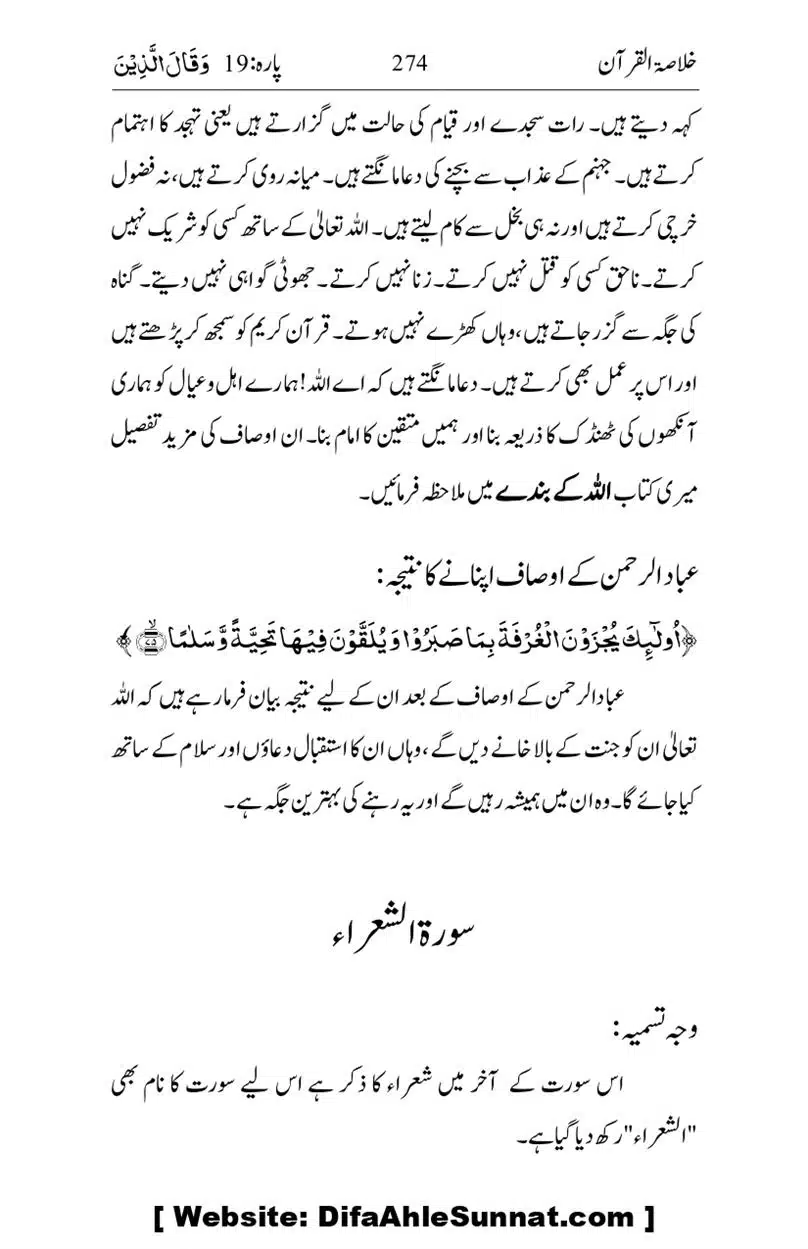 خلاصۃ القرآن 274 پارہ:19 وَقَالَ الَّذِیْنَ
کہہ دیتے ہیں۔ رات سجدے اور قیام کی حالت میں گزارتے ہیں یعنی تہجد کا اہتمام
کرتے ہیں۔ جہنم کے عذاب سے بچنے کی دعا مانگتے ہیں۔ میانہ روی کرتے ہیں، نہ فضول
خرچی کرتے ہیں اور نہ ہی بخل سے کام لیتے ہیں۔ اللہ تعالیٰ کے ساتھ کسی کو شریک نہیں
کرتے۔ ناحق کسی کو قتل نہیں کرتے۔ زنا نہیں کرتے۔ جھوٹی گواہی نہیں دیتے۔ گناہ
کی جگہ سے گزر جاتے ہیں، وہاں کھڑے نہیں ہوتے۔ قرآن کریم کو سمجھ کر پڑھتے ہیں
اور اس پر عمل بھی کرتے ہیں۔ دعا مانگتے ہیں کہ اے اللہ! ہمارے اہل و عیال کو ہماری
آنکھوں کی ٹھنڈک کا ذریعہ بنا اور ہمیں متقین کا امام بنا۔ ان اوصاف کی مزید تفصیل
میری کتاب اللہ کے بندے میں ملاحظہ فرمائیں۔
عباد الرحمن کے اوصاف اپنانے کا نتیجہ:
﴿اُولٰٓئِكَ یُجْزَوْنَ الْغُرْفَةَ بِمَا صَبَرُوْا وَ یُلَقَّوْنَ فِیْهَا تَحِیَّةً وَّ سَلٰمًا ﴿ۙ۷۵﴾﴾
عباد الرحمن کے اوصاف کے بعد ان کے لیے نتیجہ بیان فرما رہے ہیں کہ اللہ
تعالیٰ ان کو جنت کے بالا خانے دیں گے، وہاں ان کا استقبال دعاؤں اور سلام کے ساتھ
کیا جائے گا۔ وہ ان میں ہمیشہ رہیں گے اور یہ رہنے کی بہترین جگہ ہے۔
سورۃ الشعراء
وجہ تسمیہ:
اس سورت کے آخر میں شعراء کا ذکر ہے اس لیے سورت کا نام بھی
"الشعراء" رکھ دیا گیا ہے۔
[ Website: DifaAhleSunnat.com ]